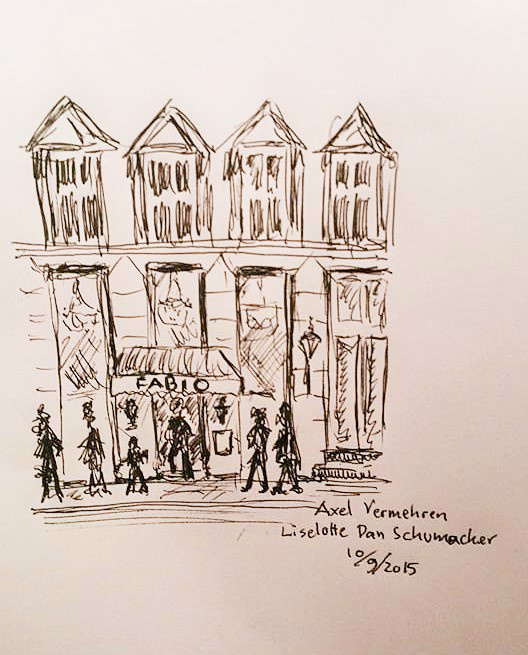 FABIO
Axel Vermehren
Liselotte Dan Schumacker
10/9/2015